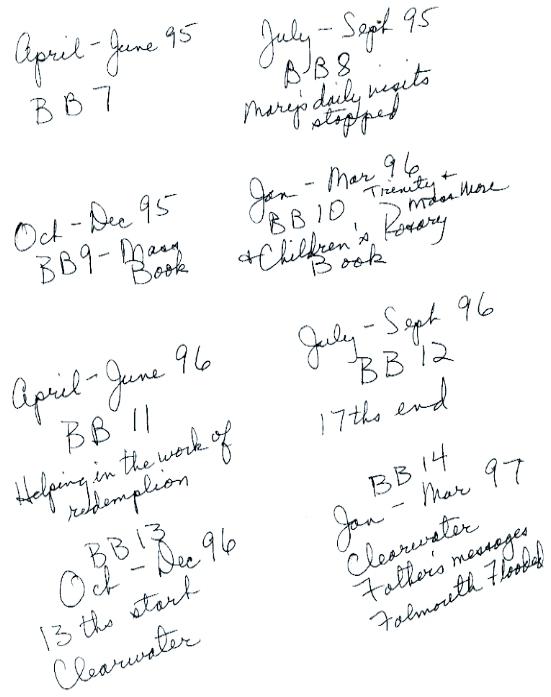 April - June 95
BB7
July - Sept 95
BB8
Mary's daily visits
stopped
Oct - Dec 95
BB9 - Mass
Book
Jan - Mar 96
BB10 Trinity +
Mass More
+ Children's Rosary
Book
April - June 96
BB 11
Helping in the work of
redemption
July - Sept 96
BB 12
17ths end
BB13
Oct - Dec 96
13 ths start
Clearwater
BB 14
Jan - Mar 97
Clearwater
Father's messages
Falmouth Flooded